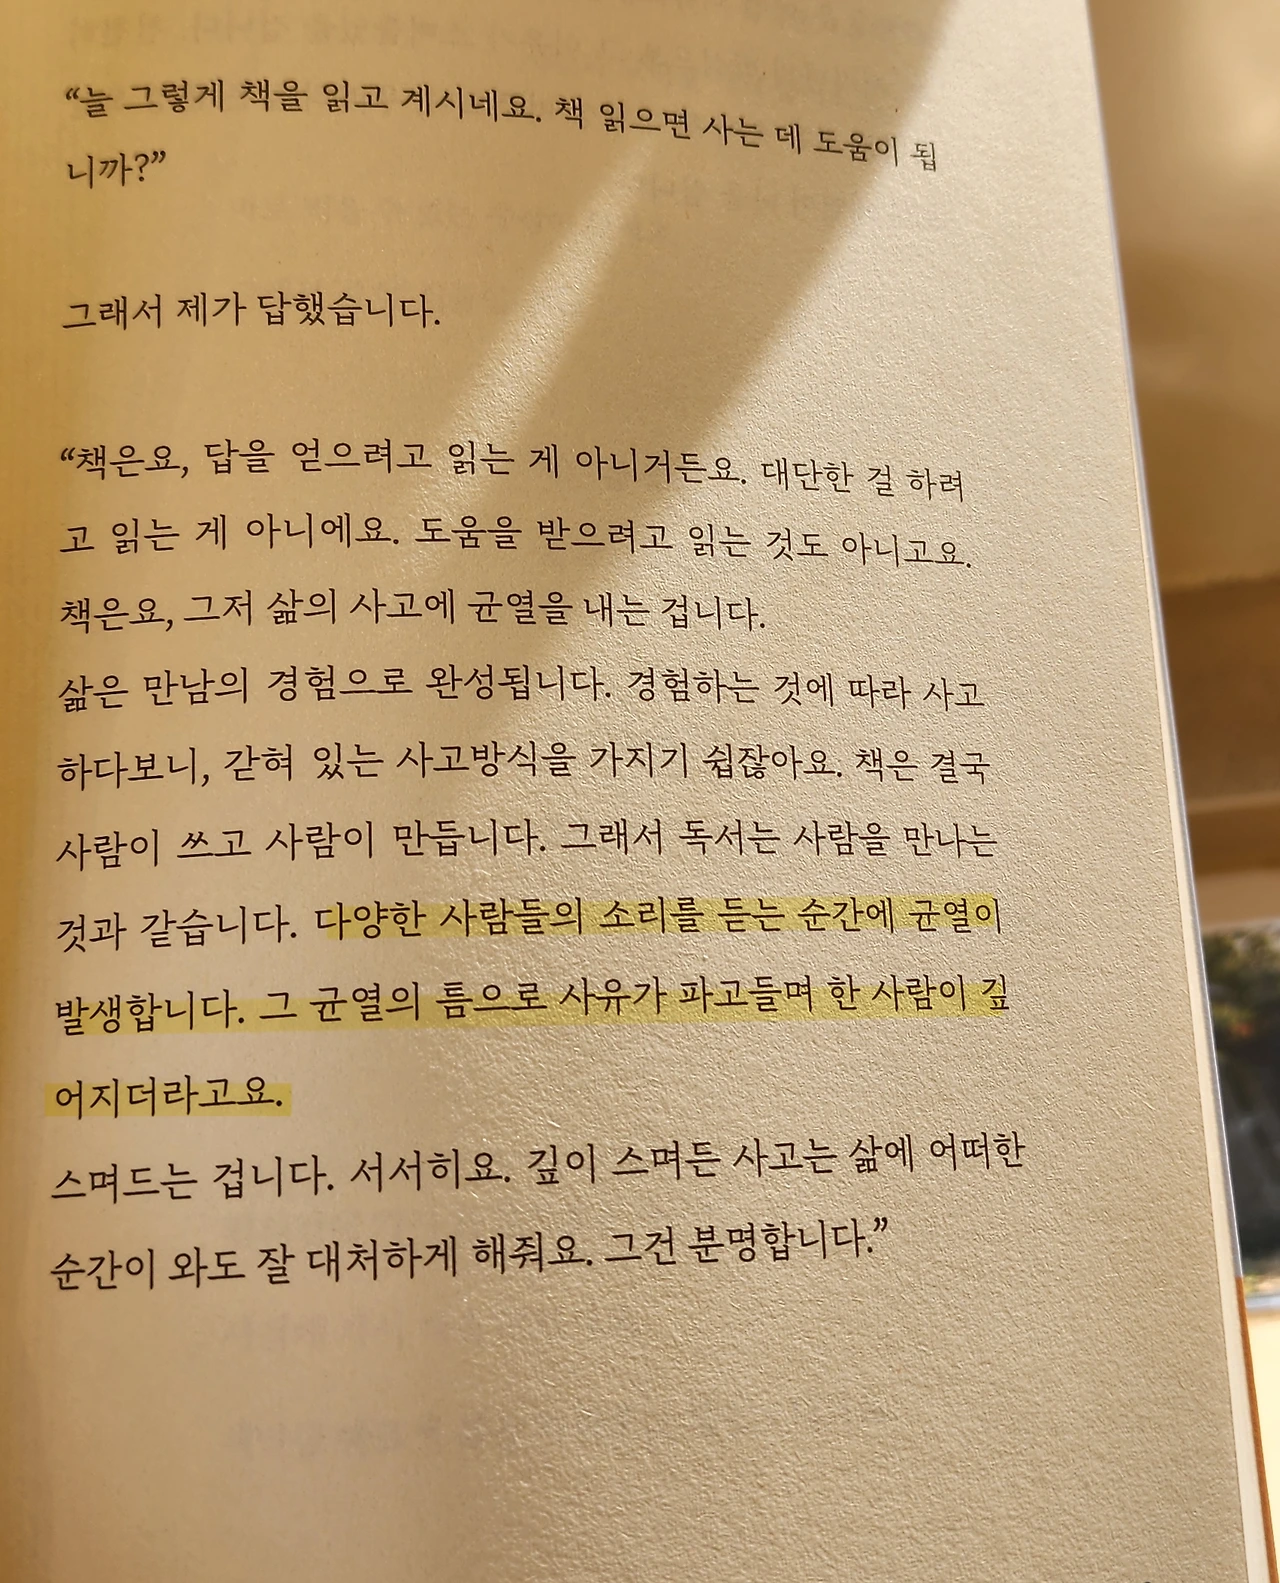 “늘 그렇게 책을 읽고 계시네요. 책 읽으면 사는 데 도움이 됩
니까?”
그래서 제가 답했습니다.
“책은요, 답을 얻으려고 읽는 게 아니거든요. 대단한 걸 하려
고 읽는 게 아니에요. 도움을 받으려고 읽는 것도 아니고요.
책은요, 그저 삶의 사고에 균열을 내는 겁니다.
삶은 만남의 경험으로 완성됩니다. 경험하는 것에 따라 사고
하다보니, 갇혀 있는 사고방식을 가지기 쉽잖아요. 책은 결국
사람이 쓰고 사람이 만듭니다. 그래서 독서는 사람을 만나는
것과 같습니다. 다양한 사람들의 소리를 듣는 순간에 균열이
발생합니다. 그 균열의 틈으로 사유가 파고들며 한 사람이 깊
어지더라고요.
스며드는 겁니다. 서서히요. 깊이 스며든 사고는 삶에 어떠한
순간이 와도 잘 대처하게 해줘요. 그건 분명합니다.”